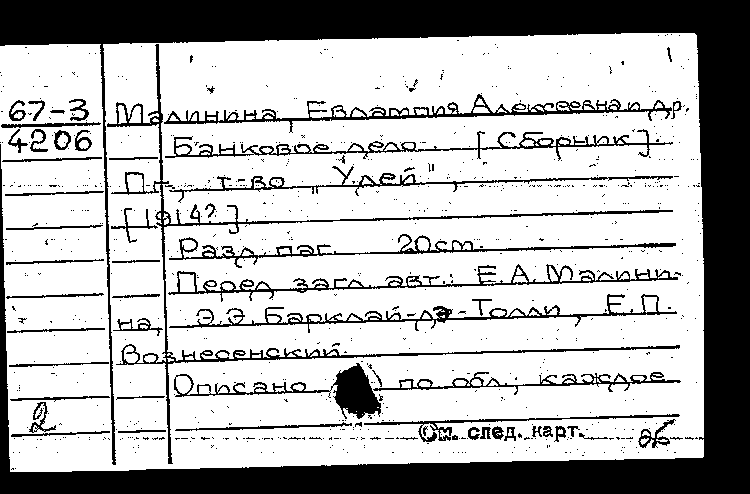 67-3 Малинина, Евлампия Алексеевна и др.
4206 Банковое дело. [Сборник].
Пг., т-во „Удей",
[1914?].
Разд. паг. 20 cm.
Перед загл. авт.: Е.А. Малини-
на, Э.Э. Барклай-дэ-Толли, Е.П.
Вознесенский.
Описано по обл.; каждое
2
См. след. карт.